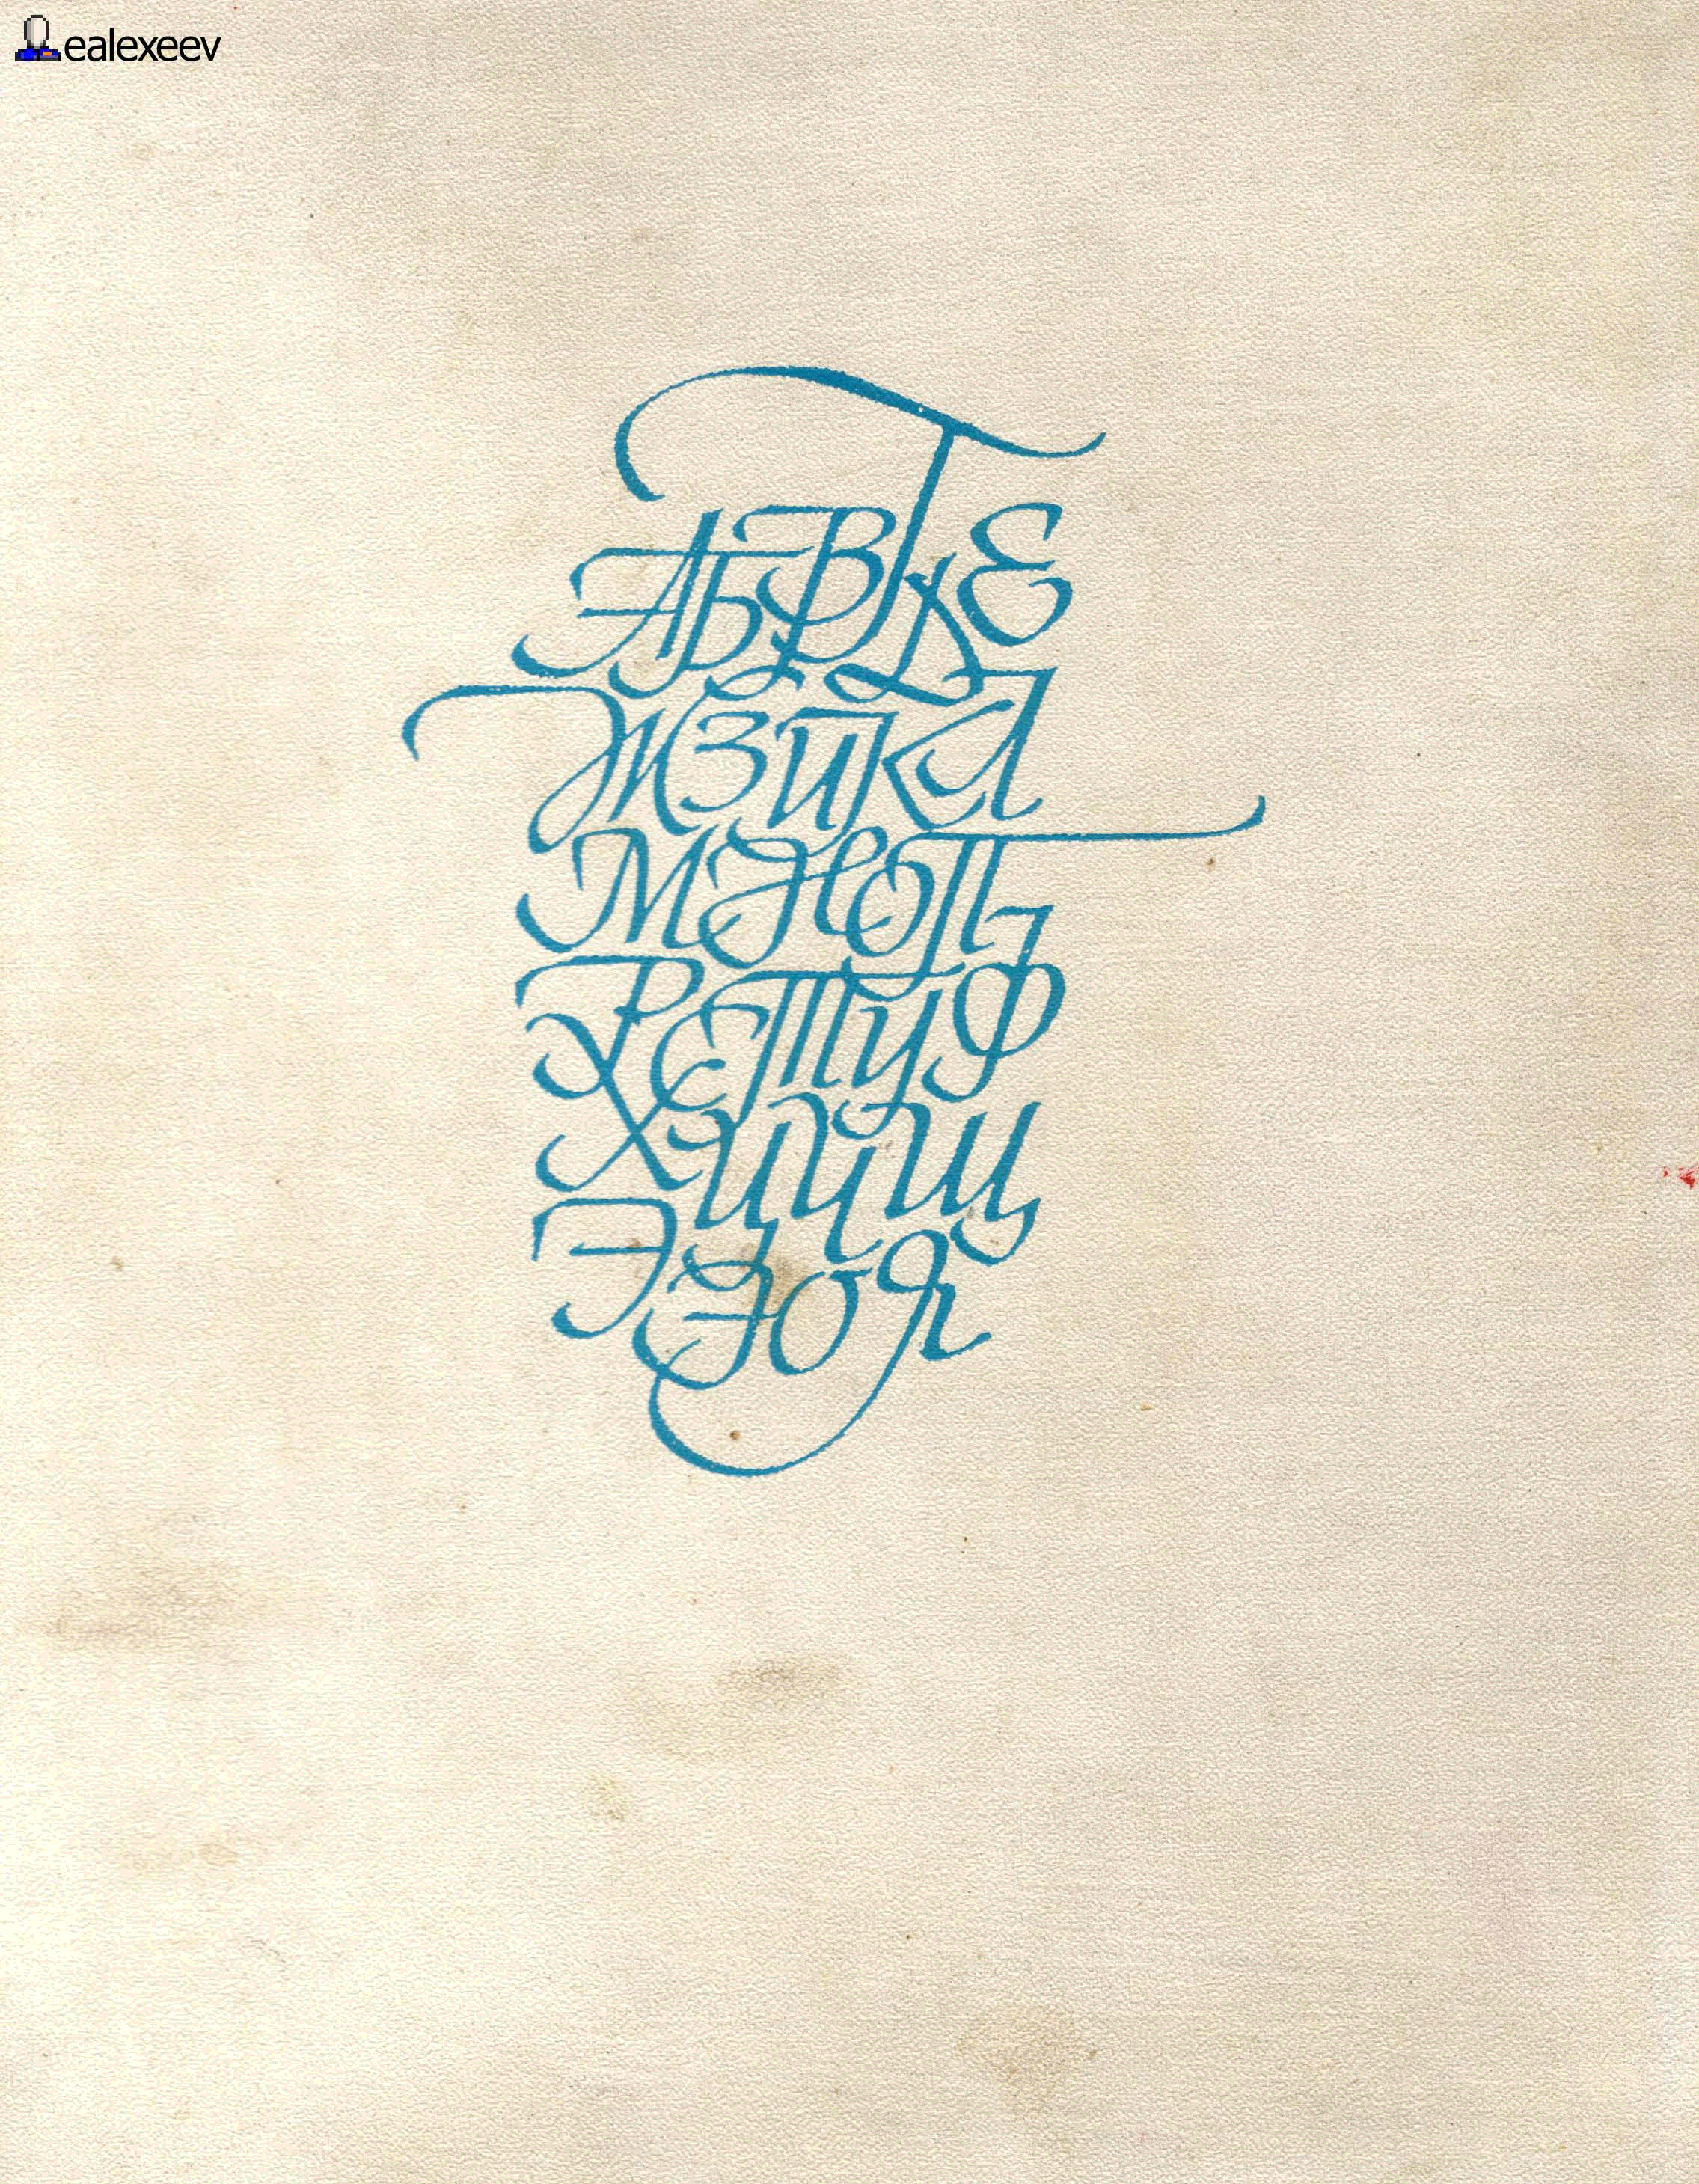 ealexeev
АБВГДЕ
ЖЗИКЛ
МНОП
РСТУФ
ХЦЧЩ
ЭЭЮЯ